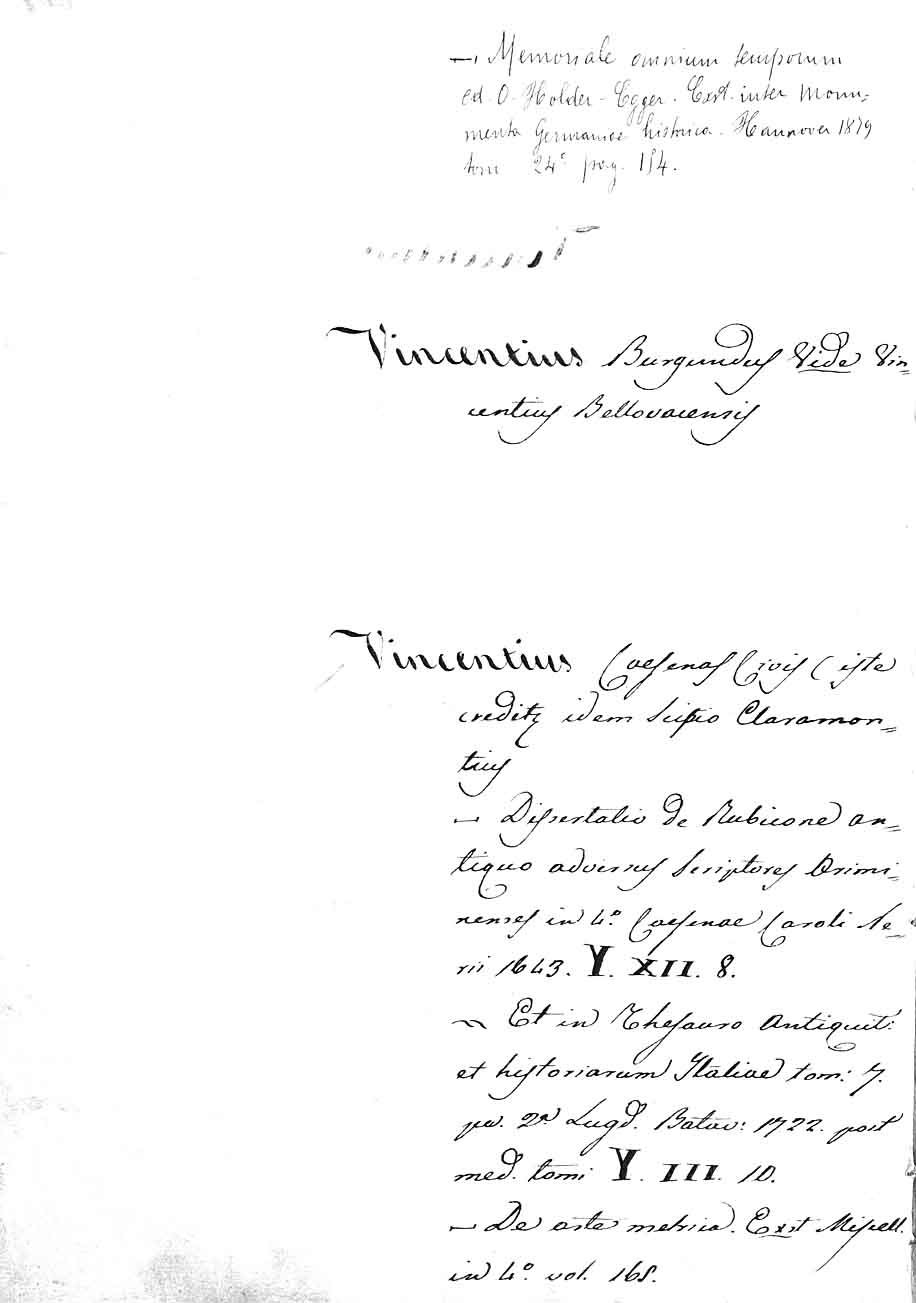 — Memoriale omnium temporum
ed. O. Holder-Egger. Exst. inter Monu=
menta Germaniae historica. Hannover 1879
tom 24° pag. 154.
Vincentius Burgundus Vide Vin=
centius Bellovacensis
Vincentius Caesenas Civis (iste
creditq idem Scipio Claramon=
tius
— Dissertatio de Rubicone an=
tiquo adversus Scriptores Arimi=
nenses in 4.° Caesenae Caroli Ne=
rii 1643. Y. XII. 8.
— Et in Thesauro Antiquit:
et historiarum Italiae tom: 7.
pa. 2ª Lugd. Batav: 1722. post
med. tomi Y. III. 10.
— De arte metrica. Exst Miscell.
in 4.° vol. 168.